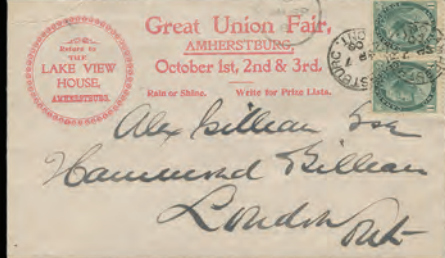 Return to
THE
LAKE VIEW
HOUSE,
AMHERSTBURG.
Great Union Fair,
AMHERSTBURG,
October 1st, 2nd & 3rd.
Rain or Shine. Write for Prize Lists.
Alex Gillean Esq
Hammond Gillean
London
Ont